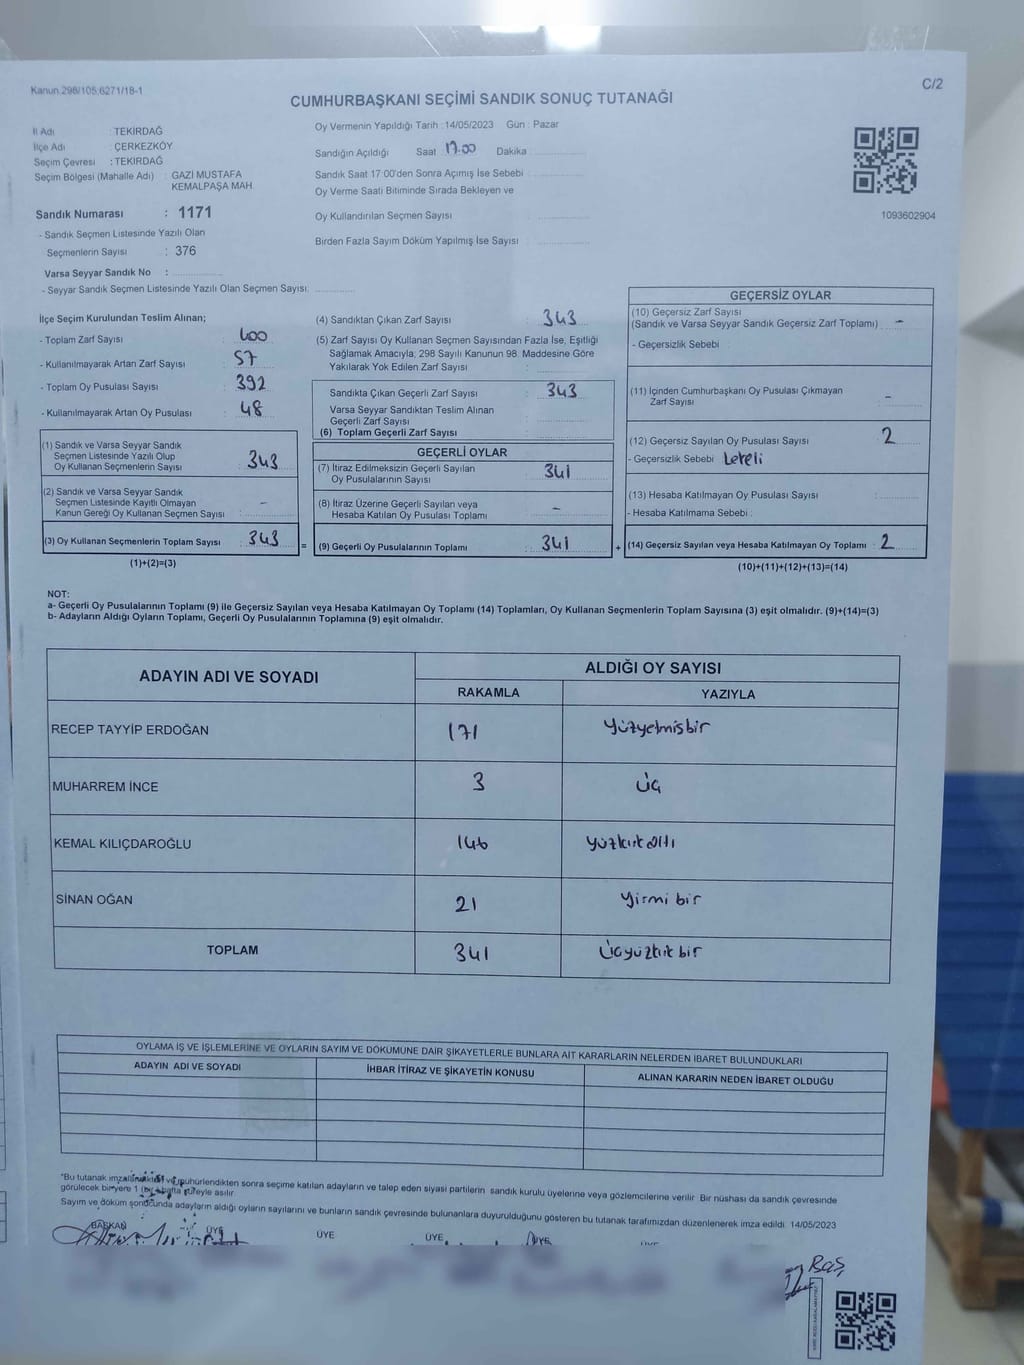 Kanun 298/105;6271/18-1
C/2
CUMHURBAŞKANI SEÇİMİ SANDIK SONUÇ TUTANAĞI
İl Adı : TEKİRDAĞ
İlçe Adı : ÇERKEZKÖY
Seçim Çevresi : TEKİRDAĞ
Seçim Bölgesi (Mahalle Adı) : GAZİ MUSTAFA
KEMALPAŞA MAH.
Sandık Numarası : 1171
- Sandık Seçmen Listesinde Yazılı Olan
Seçmenlerin Sayısı : 376
Varsa Seyyar Sandık No :
- Seyyar Sandık Seçmen Listesinde Yazılı Olan Seçmen Sayısı:
Oy Vermenin Yapıldığı Tarih : 14/05/2023 Gün : Pazar
Sandığın Açıldığı Saat 17.00 Dakika
Sandık Saat 17:00'den Sonra Açımış İse Sebebi
Oy Verme Saati Bitiminde Sırada Bekleyen ve
Oy Kullandırılan Seçmen Sayısı :
Birden Fazla Sayım Döküm Yapılmış İse Sayısı :
1093602904
İlçe Seçim Kurulundan Teslim Alınan;
- Toplam Zarf Sayısı : 400
- Kullanılmayarak Artan Zarf Sayısı : 57
- Toplam Oy Pusulası Sayısı : 392
- Kullanılmayarak Artan Oy Pusulası : 48
(1) Sandık ve Varsa Seyyar Sandık
Seçmen Listesinde Yazılı Olup
Oy Kullanan Seçmenlerin Sayısı : 343
(2) Sandık ve Varsa Seyyar Sandık
Seçmen Listesinde Kayıtlı Olmayan
Kanun Gereği Oy Kullanan Seçmen Sayısı : -
(3) Oy Kullanan Seçmenlerin Toplam Sayısı : 343
(1)+(2)=(3)
(4) Sandıktan Çıkan Zarf Sayısı : 343
(5) Zarf Sayısı Oy Kullanan Seçmen Sayısından Fazla İse, Eşitliği
Sağlamak Amacıyla; 298 Sayılı Kanunun 98. Maddesine Göre
Yakılarak Yok Edilen Zarf Sayısı :
Sandıkta Çıkan Geçerli Zarf Sayısı : 343
Varsa Seyyar Sandıktan Teslim Alınan
Geçerli Zarf Sayısı :
(6) Toplam Geçerli Zarf Sayısı :
GEÇERLİ OYLAR
(7) İtiraz Edilmeksizin Geçerli Sayılan
Oy Pusulalarının Sayısı : 341
(8) İtiraz Üzerine Geçerli Sayılan veya
Hesaba Katılan Oy Pusulası Toplamı : -
= (9) Geçerli Oy Pusulalarının Toplamı : 341
GEÇERSİZ OYLAR
(10) Geçersiz Zarf Sayısı
(Sandık ve Varsa Seyyar Sandık Geçersiz Zarf Toplamı) : -
- Geçersizlik Sebebi :
(11) İçinden Cumhurbaşkanı Oy Pusulası Çıkmayan
Zarf Sayısı : -
(12) Geçersiz Sayılan Oy Pusulası Sayısı : 2
- Geçersizlik Sebebi : Lekeli
(13) Hesaba Katılmayan Oy Pusulası Sayısı :
- Hesaba Katılmama Sebebi :
+ (14) Geçersiz Sayılan veya Hesaba Katılmayan Oy Toplamı : 2
(10)+(11)+(12)+(13)=(14)
NOT:
a- Geçerli Oy Pusulalarının Toplamı (9) ile Geçersiz Sayılan veya Hesaba Katılmayan Oy Toplamı (14) Toplamları, Oy Kullanan Seçmenlerin Toplam Sayısına (3) eşit olmalıdır. (9)+(14)=(3)
b- Adayların Aldığı Oyların Toplamı, Geçerli Oy Pusulalarının Toplamına (9) eşit olmalıdır.
ADAYIN ADI VE SOYADI
ALDIĞI OY SAYISI
RAKAMLA YAZIYLA
RECEP TAYYİP ERDOĞAN 171 Yüzyetmişbir
MUHARREM İNCE 3 Üç
KEMAL KILIÇDAROĞLU 146 Yüzkırkaltı
SİNAN OĞAN 21 Yirmi bir
TOPLAM 341 Üçyüzkırk bir
OYLAMA İŞ VE İŞLEMLERİNE VE OYLARIN SAYIM VE DÖKÜMÜNE DAİR ŞİKAYETLERLE BUNLARA AİT KARARLARIN NELERDEN İBARET BULUNDUKLARI
ADAYIN ADI VE SOYADI İHBAR İTİRAZ VE ŞİKAYETİN KONUSU ALINAN KARARIN NEDEN İBARET OLDUĞU
*Bu tutanak imzalandıktan ve mühürlendikten sonra seçime katılan adayların ve talep eden siyasi partilerin sandık kurulu üyelerine veya gözlemcilerine verilir. Bir nüshası da sandık çevresinde
görülecek bir yere 1 (bir) hafta süreyle asılır.
Sayım ve döküm sonucunda adayların aldığı oyların sayılarını ve bunların sandık çevresinde bulunanlara duyurulduğunu gösteren bu tutanak tarafımızdan düzenlenerek imza edildi. 14/05/2023
BAŞKAN ÜYE ÜYE ÜYE ÜYE ÜYE